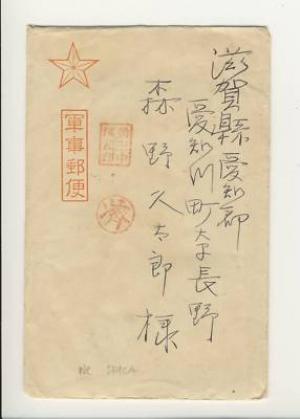 滋賀縣愛知郡
愛知川町大字長野
森野久太郎様
軍事郵便